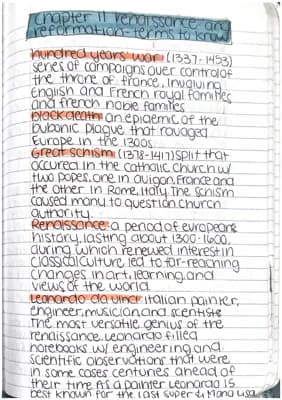 chapter 11 renaissance and
reformation-terms to know
hundred years war (1337-1453)
series of campaigns over control of
the throne of france, involving
english and french royal families
and french noble families
black death an epidemic of the
bubonic plague that ravaged
Europe in the 1300s
Great schism (1378-1417) split that
occured in the catholic church w/
two popes, one in avigon, France and
the other in Rome, Italy. The schism
caused many to question church
authority.
Renaissance a period of european
history, lasting about 1300-1600,
during which renewed interest in
classical culture led to far-reaching
changes in art, learning, and
views of the world
leonardo da vinci italian painter,
engineer, musician and scientist
The most versatile genius of the
renaissance. Leonardo filled
notebooks w/ engineering and
scientific observations that were
in some cases centuries ahead of
their time. As a painter Leonardo is
best known for the last supper & Mona Lisa